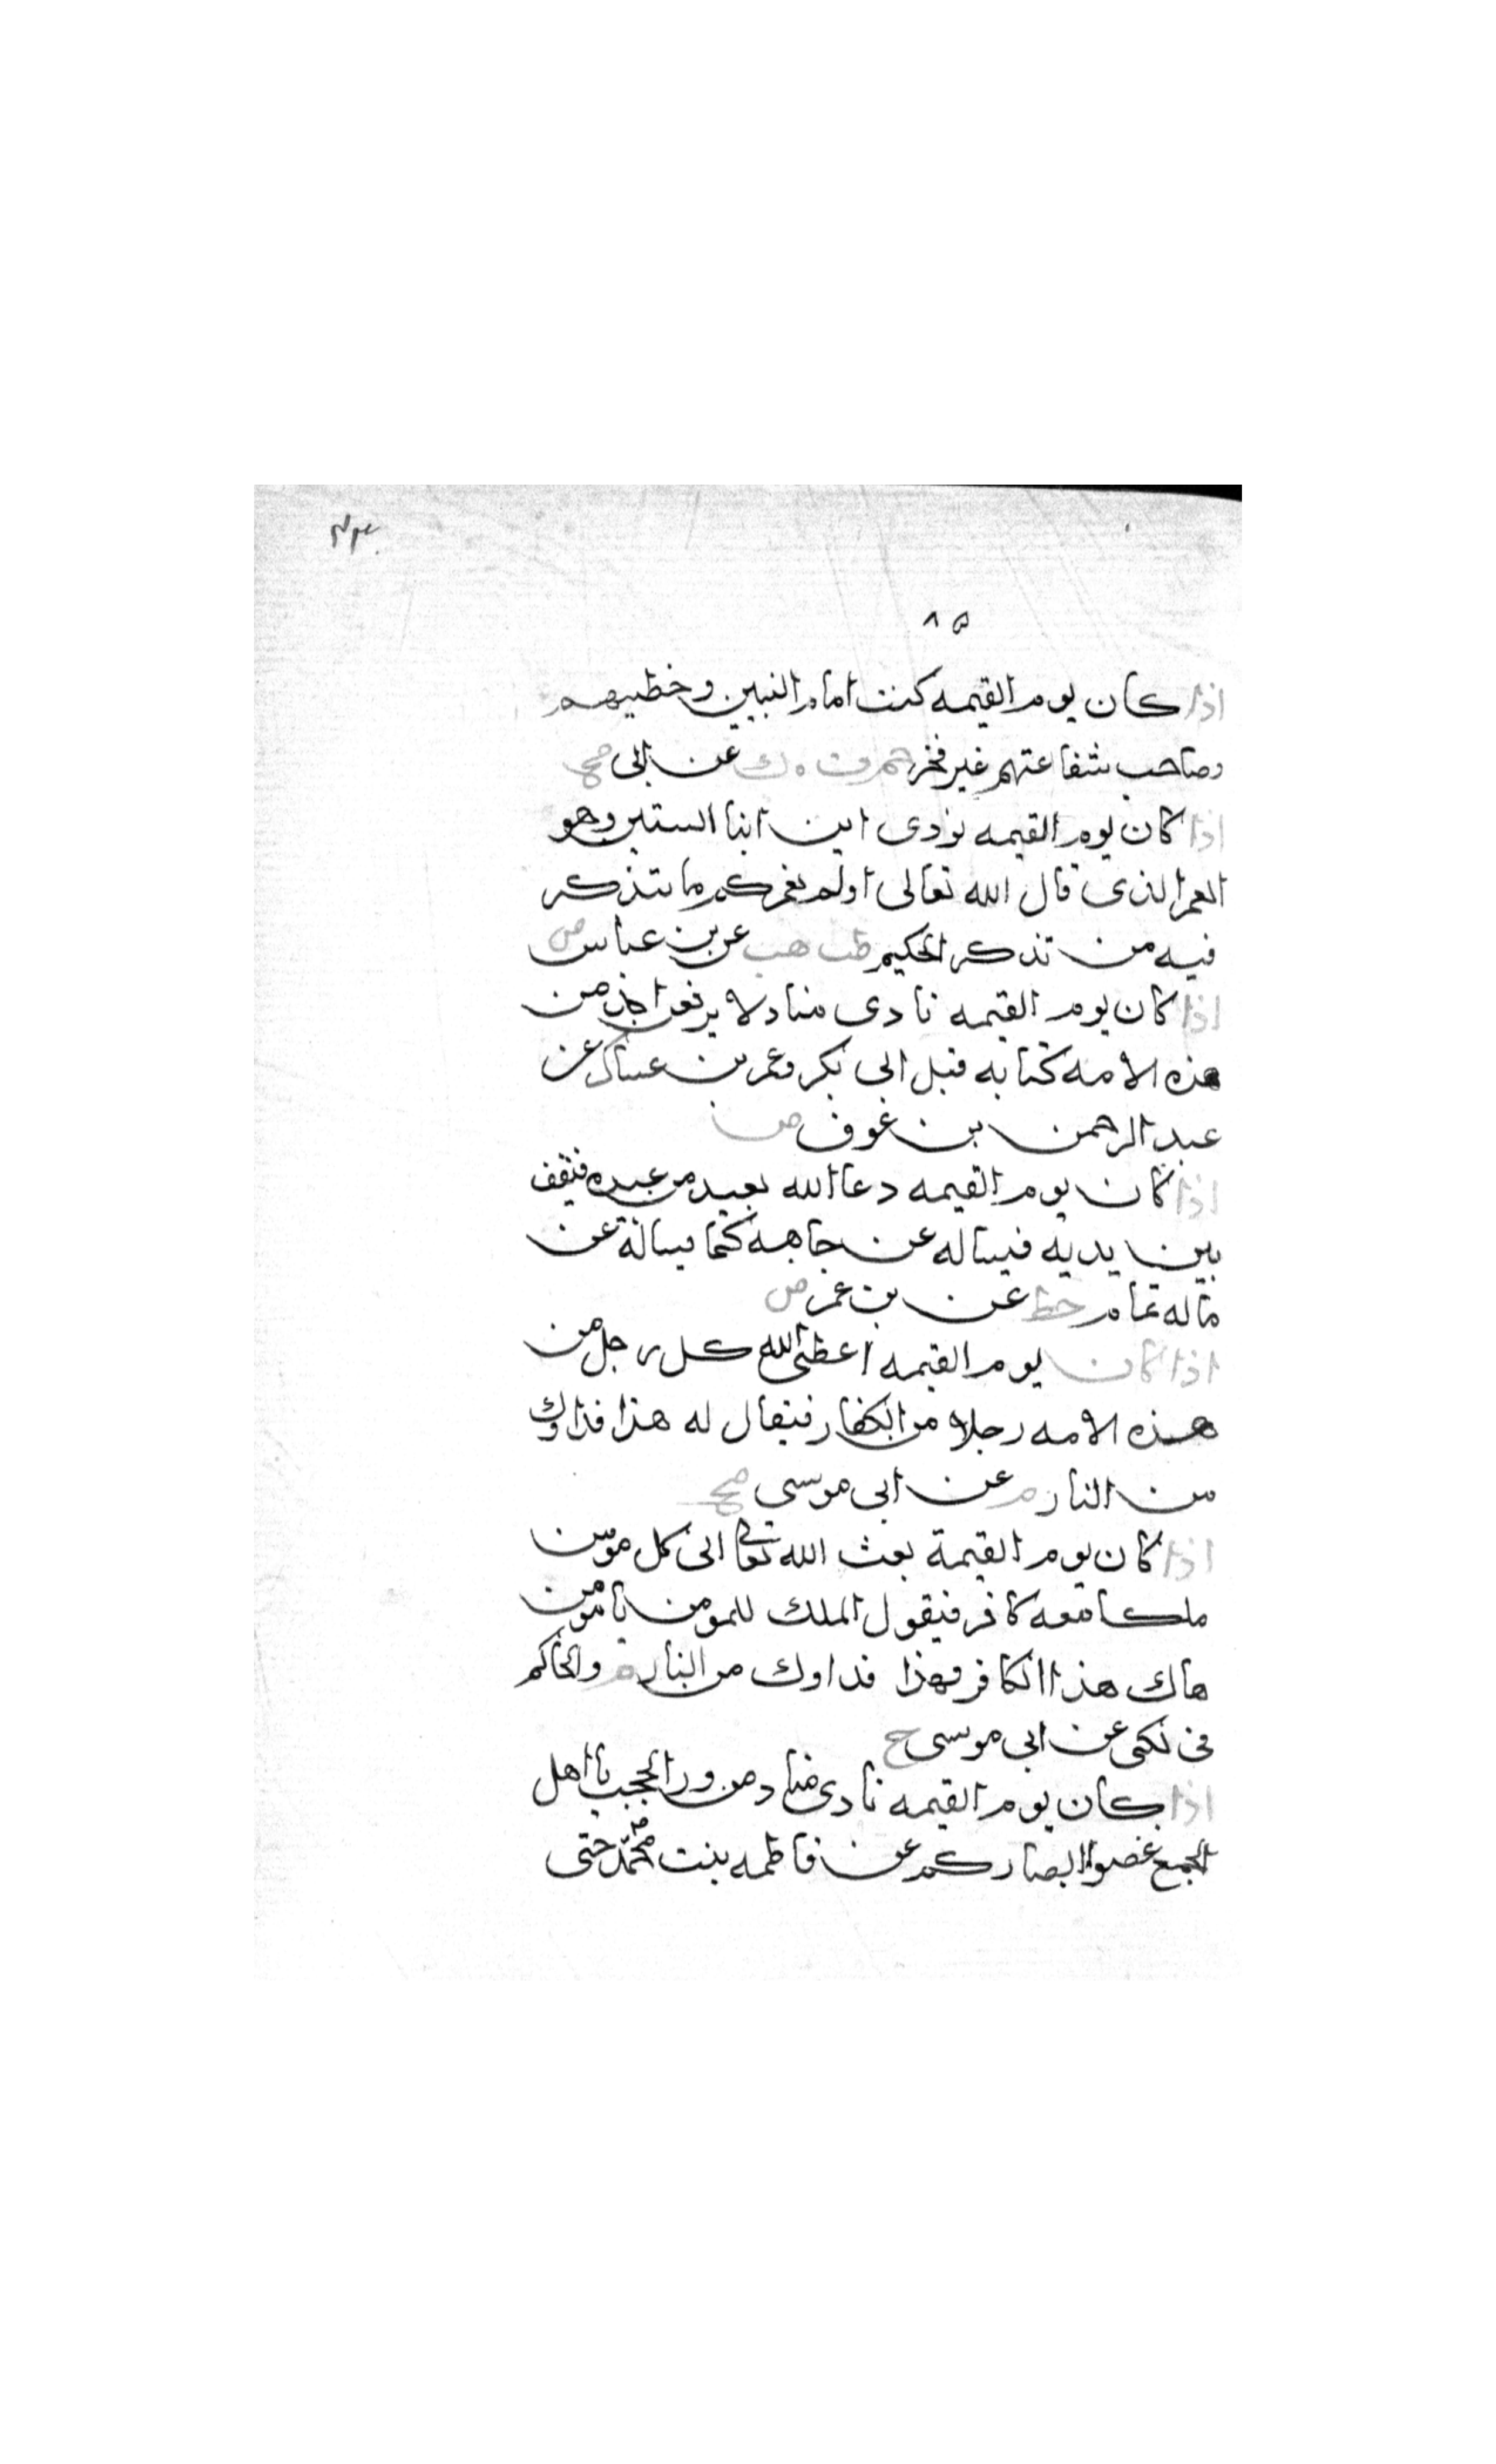 ٨٥
اذا كان يوم القيمه كنت امام النبين وخطيبهم
وصاحب شفاعتهم غير فخر حم ت ه ك عن ابى صح
اذا كان يوم القيمه نودى اين ابنا الستين وهو
العمر الذى قال الله تعالى اولم نعمركم ما يتذكر
فيه من تذكر الحكيم طب هب عن بن عباس ض
اذا كان يوم القيمه نادى مناد لا يرفعن احد من
هذه الامه كتابه قبل ابى بكر وعمر بن عساكر عن
عبد الرحمن بن عوف ض
اذا كان يوم القيمه دعا الله بعبد من عبيده فيقف
بين يديه فيساله عن جاهه كما يساله عن
ماله تمام خط عن بن عمر ض
اذا كان يوم القيمه اعطى الله كل رجل من
هذه الامه رجلا من الكفار فيقال له هذا فداوك
من النار م عن ابى موسى صح
اذا كان يوم القيمة بعث الله تعالى الى كل مومن
ملكا معه كافر فيقول الملك للمومن يا مومن
هاك هذا الكافر فهذا فداوك من النار والحاكم
فى نكى عن ابى موسى ح
اذا كان يوم القيمه نادى مناد من ورا الحجب يا اهل
الجمع غضوا ابصاركم عن فاطمه بنت محمد حتى